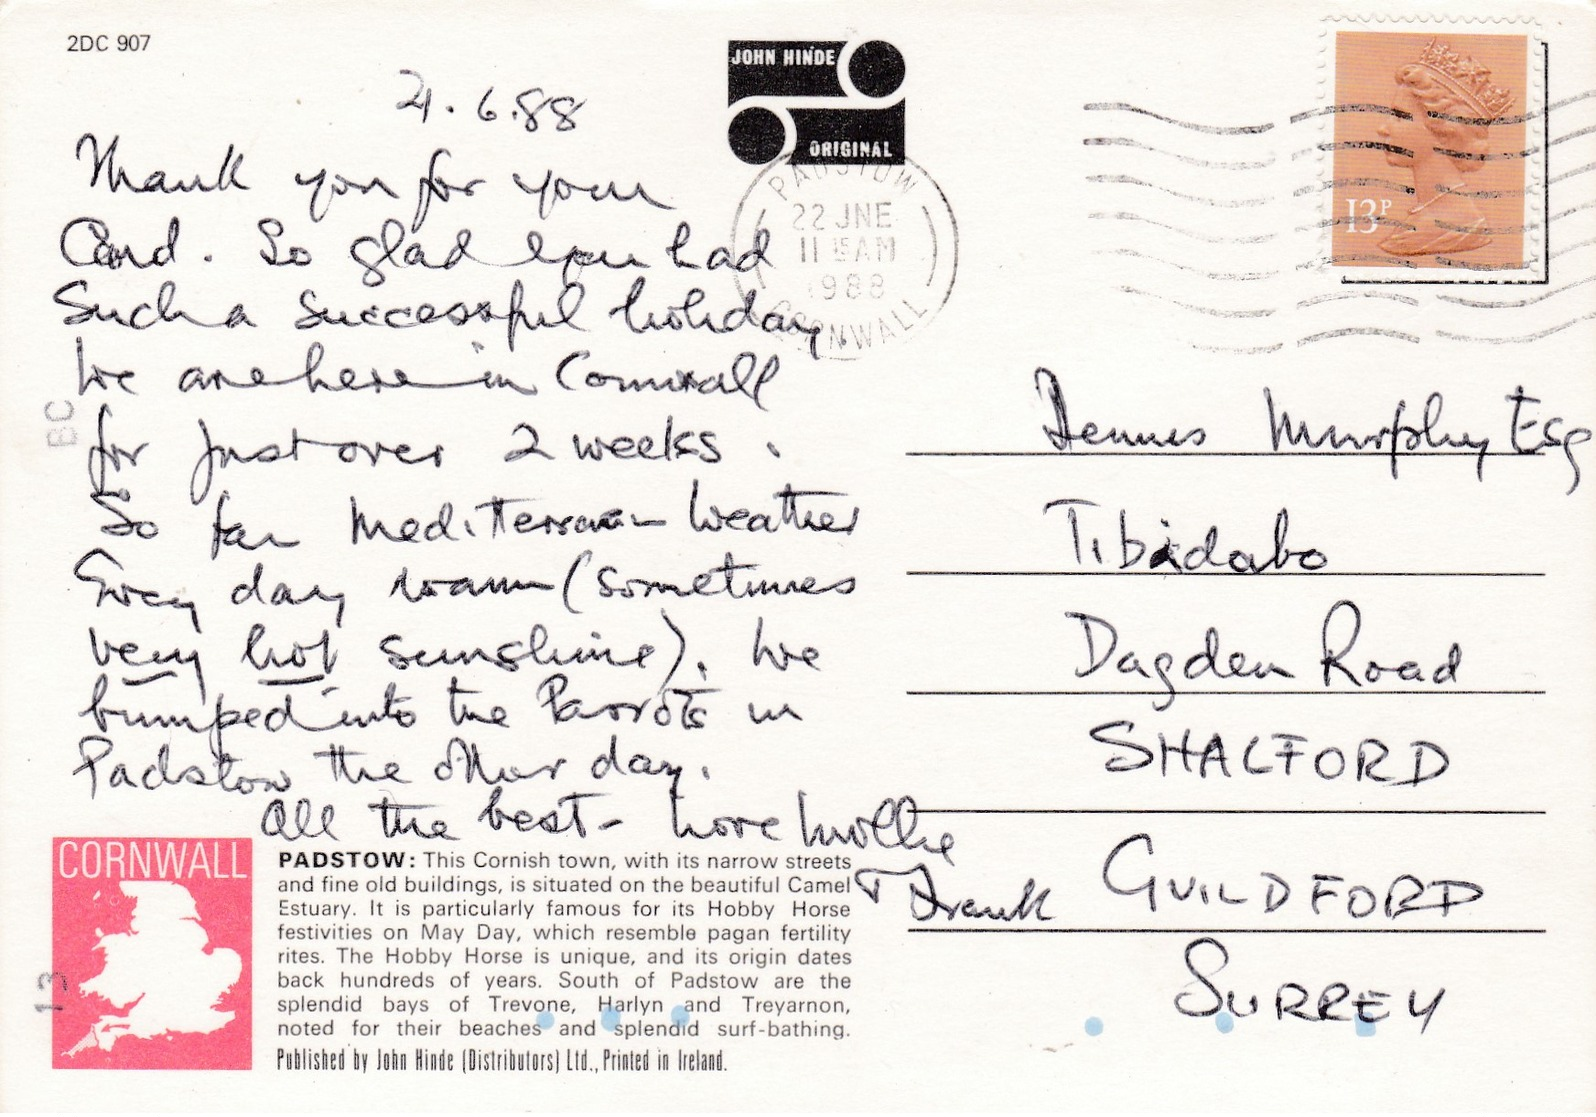 2DC 907
JOHN HINDE
ORIGINAL
PADSTOW
22 JNE
11 15AM
1988
CORNWALL
13P
21.6.88
Thank you for your
Card. So glad you had
Such a successful holiday.
We are here in Cornwall
for just over 2 weeks.
So far Mediterranean weather
Every day warm (sometimes
very hot sunshine). We
bumped into the Parrots in
Padstow the other day.
All the best - love Mollie
+ Frank
Dennis Murphy Esq
Tibidabo
Dagden Road
SHALFORD
GUILDFORD
SURREY
BC
13
CORNWALL
PADSTOW: This Cornish town, with its narrow streets
and fine old buildings, is situated on the beautiful Camel
Estuary. It is particularly famous for its Hobby Horse
festivities on May Day, which resemble pagan fertility
rites. The Hobby Horse is unique, and its origin dates
back hundreds of years. South of Padstow are the
splendid bays of Trevone, Harlyn and Treyarnon,
noted for their beaches and splendid surf-bathing.
Published by John Hinde (Distributors) Ltd., Printed in Ireland.